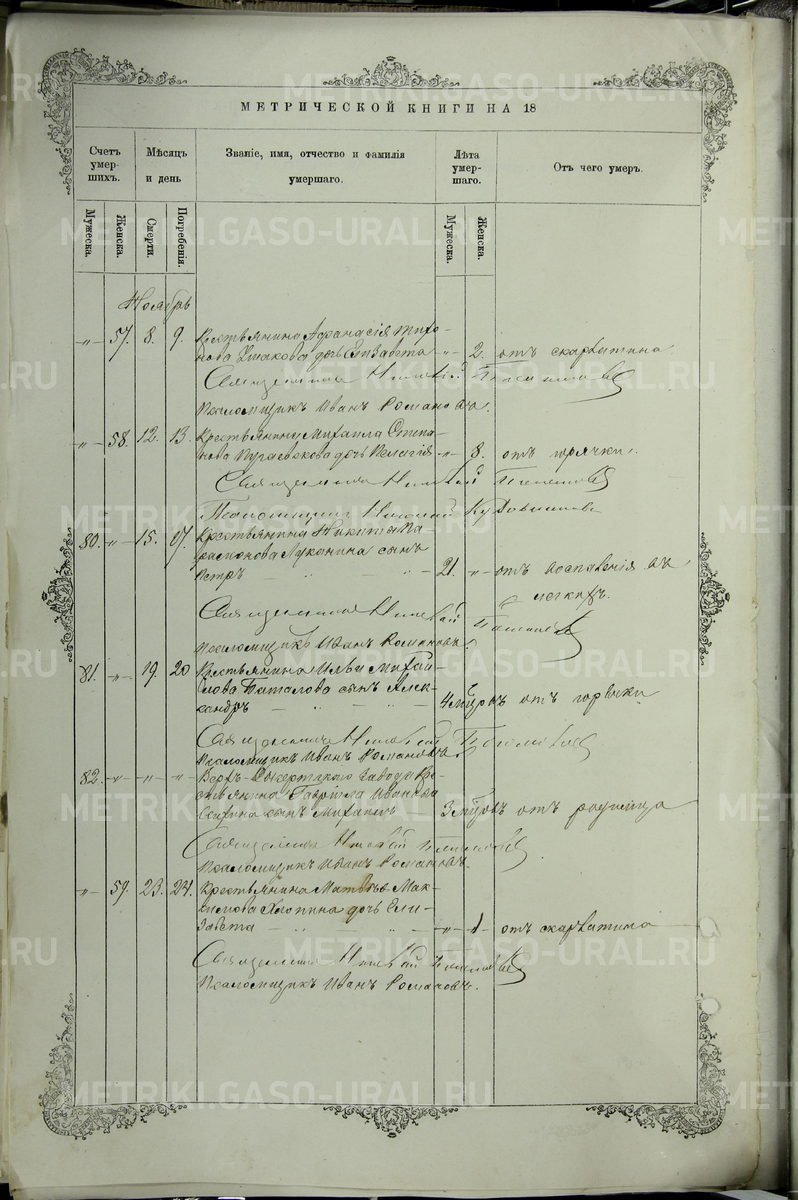 МЕТРИЧЕСКОЙ КНИГИ НА 18
Счетъ умер-шихъ.
Мѣсяцъ и день
Званіе, имя, отчество и фамилія умершаго.
Лѣта умер-шаго.
Отъ чего умеръ.
Мужеска.
Женска.
Смерти.
Погребенія.
Мужеска.
Женска.
Ноябрь
-"- 57. 8. 9. Крестьянина Афанасія Миро-
нова Ушакова дочь Елизавета -"- 2. отъ скарлатина
Священникъ Николай
Псаломщикъ Иванъ Романовъ.
-"- 58. 12. 13. Крестьянина Михаила Степа-
нова дочь Пелагія -"- 8. отъ горячки.
Священникъ Николай
Псаломщикъ Николай
80. -"- 15. 17. Крестьянина Никиты Па-
Луканина сынъ
Петръ " - " - 21. " отъ воспаленія въ
легкихъ.
Священникъ Николай
Псаломщикъ Иванъ Романовъ.
81. -"- 19. 20 Крестьянина Ильи Михай-
лова сынъ Алек-
сандръ - " - " - 4 отъ горячки
Священникъ Николай
Псаломщикъ Иванъ Романовъ
82. -"- -"- -"- Верхъ-Сысертскаго Завода Кре-
стьянина Гавріила Иванова
сынъ Михаилъ 3 отъ родимца
Священникъ Николай
Псаломщикъ Иванъ Романовъ.
-"- 59. 23. 24. Крестьянина Матвѣя Мак-
симова дочь Ели-
завета - " - -"- 1 отъ скарлатина
Священникъ Николай
Псаломщикъ Иванъ Романовъ.
METRIKI.GASO-URAL.RU